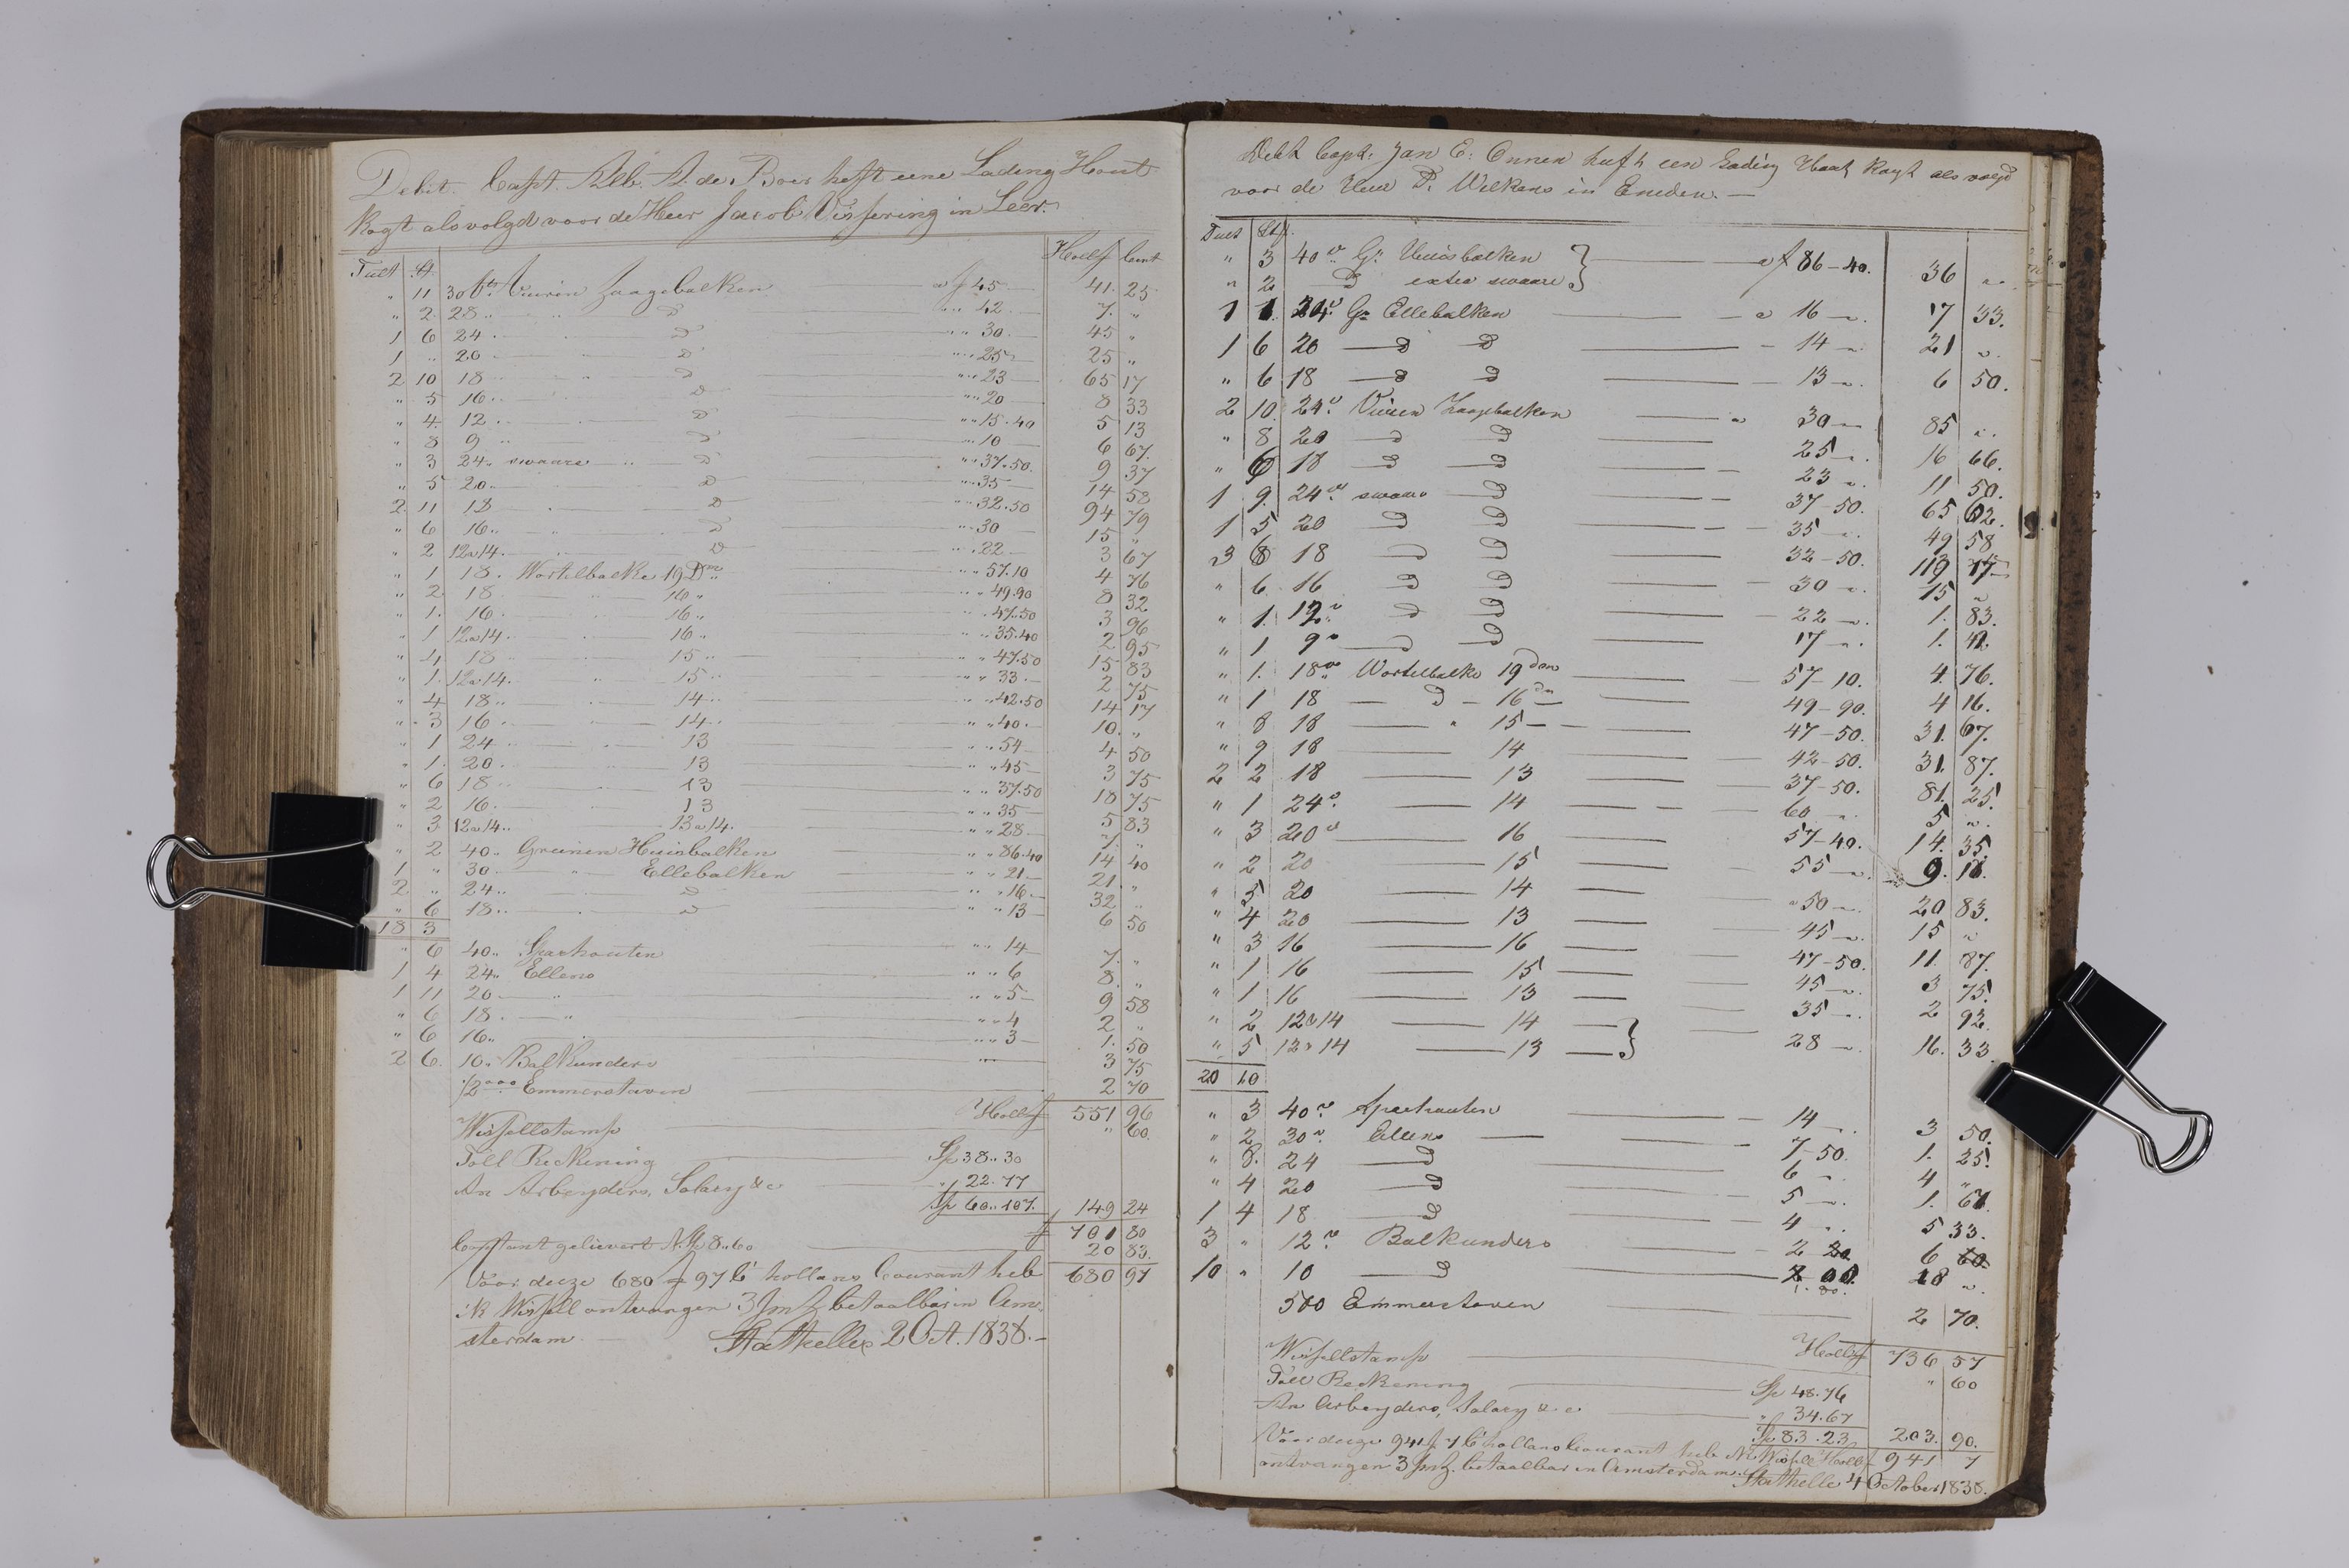 Debit. Capt. Alb. A. de Boer heft eene Lading Hout
kogt als volgd voor de Heer Jacob Vissering in Leer.
Tult St. Hollf Cent
" 11 30 Vuuren Zaagebalken a f 45 — 41 25
" 2 28 " " D " " 42 — 7 "
1 6 24 " D " " 30 — 45 "
1 " 20 " D " " 25 — 25 "
2 10 18 " D " " 23 — 65 17
" 5 16 " D " " 20 — 8 33
" 4 12 " D " " 15.40 5 13
" 8 9 " D " " 10 — 6 67
" 3 24 " swaare " D " " 37.50 9 37
" 5 20 " D " " 35 — 14 58
2 11 18 " D " " 32.50 94 79
" 6 16 " D " " 30 — 15 "
" 2 12 a 14 " D " " 22 — 3 67
" 1 18 " Wortelbalke 19 Dm " " 57.10 4 76
" 2 18 " 16 " " " 49.90 8 32
" 1 16 " 16 " " " 47.50 3 96
" 1 12 a 14 " 16 " " " 35.40 2 95
" 4 18 " 15 " " " 47.50 15 83
" 1 12 a 14 " 15 " " " 33 — 2 75
" 4 18 " 14 " " " 42.50 14 17
" 3 16 " 14 " " " 40 — 10 "
" 1 24 " 13 " " 54 — 4 50
" 1 20 " 13 " " 45 — 3 75
" 6 18 " 13 " " 37.50 18 75
" 2 16 " 13 " " 35 — 5 83
" 3 12 a 14 " 13 a 14 " " 28 — 7 "
" 2 40 " Greinen Huisbalken " " 86.40 14 40
1 " 30 " " Ellebalken " " 21 — 21 "
2 " 24 " D " " 16 — 32 "
" 6 18 " D " " 13 — 6 50
18 3
" 6 40 " Sparhouten " " 14 — 7 "
1 4 24 " Ellens " " 6 8 "
1 11 20 — " " " 5 — 9 58
" 6 18 — " " " 4 2 "
" 6 16 " " " 3 — 1 50
2 6 10 " Balkunders 3 75
1/2000 Emmerstaven 2 70
Hollf 551 96
Wissellstamp " 60
Toll Reckening Sp 38 .. 30
An Arbeyders, Salary &c " 22 .. 77
Sp 60 .. 107 149 24
f 701 80
Contant gelievert Sp 8 .. 60 20 83
Voor deeze 680 f 97 C hollans Courant heb 680 97
ik Wissell ontvangen 3 betaalbar in Am-
sterdam — Stathelle 2 Oct. 1838. —
Debit Capt: Jan E: Onnen heft een Lading Hout kogt als volgd
voor de Heer D. Wilkens in Emden. —
Tult St.
" 3 40 v G: Huisbalken } a f 86 – 40. 36 "
" 2 D extra swaare }
1 1 24 v G: Ellebalken — a 16 — 17 33.
1 6 20 — D D — 14 — 21 "
" 6 18 — D D — 13 — 6 50.
2 10 24 v Vuuren Zaagebalken — " 30 — 85 "
" 8 20 — D D — 25 — 16 66.
" 6 18 — D D — 23 — 11 50.
1 9 24 v swaare D — 37 – 50. 65 62.
1 5 20 D D — 35 — 49 58
3 8 18 D D — 32 – 50. 119 17
" 6 16 D D — 30 — 15 "
" 1 12 v D D — 22 — 1 83.
" 1 9 v D D — 17 — 1 42.
" 1 18 v Wortelbalke 19 dm — 57 – 10. 4 76.
" 1 18 — D – 16 dm — 49 – 90. 4 16.
" 8 18 — " 15 — 47 – 50. 31 67.
" 9 18 — 14 — 42 – 50. 31 87.
2 2 18 — 13 — 37 – 50. 81 25.
" 1 24 v — 14 — 60 — 5 "
" 3 20 v — 16 — 57 – 40. 14 35.
" 2 20 — 15 — 55 — 9 18.
" 5 20 — 14 — 50 — 20 83.
" 4 20 — 13 — 45 — 15 "
" 3 16 — 16 — 47 – 50. 11 87.
" 1 16 — 15 — 45 — 3 75.
" 1 16 — 13 — 35 — 2 92.
" 2 12 a 14 — 14 — }
" 5 12 a 14 — 13 — } 28 — 16 33.
20 10
" 3 40 v Sparhouten — 14 — 3 50.
" 2 30 v Ellens — 7 – 50. 1 25.
" 8 24 D — 6 — 4 "
" 4 20 D — 5 — 1 67.
1 4 18 D — 4 — 5 33.
3 " 12 v Balkunders — 2 20 6 60
10 " 10 D — 1.80. 18 "
500 Emmerstaven 2 70.
Hollf 736 57
Wissellstamp " 60
Toll Reckening Sp 48.76
An Arbeyders, Salary & c " 34.67
Sp 83.23 203 90.
Voor deeze 941 f 7 C hollans Courant heb ik Wissell Hollf 941 7
ontvangen 3 betaalbar in Amsterdam.
Stathelle 4 October 1838.